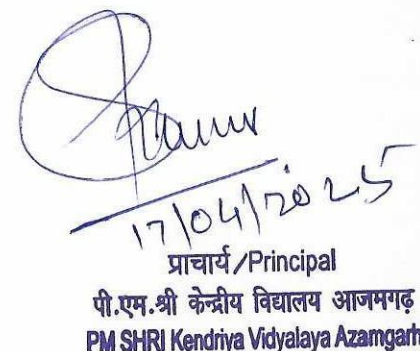 17/04/2025
प्राचार्य/Principal
पी.एम.श्री केन्द्रीय विद्यालय आजमगढ़
PM SHRI Kendriya Vidyalaya Azamgarh